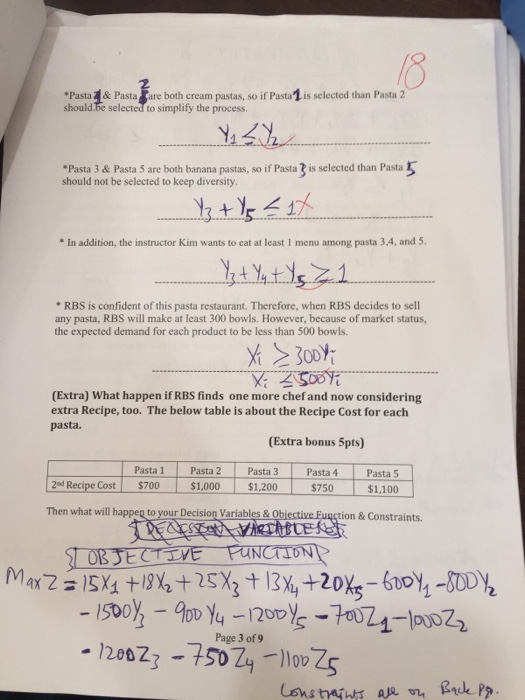 18
*Pasta 1 & Pasta 2 are both cream pastas, so if Pasta 1 is selected than Pasta 2
should be selected to simplify the process.
Y1 ≤ Y2
*Pasta 3 & Pasta 5 are both banana pastas, so if Pasta 3 is selected than Pasta 5
should not be selected to keep diversity.
Y3 + Y5 ≤ 1
* In addition, the instructor Kim wants to eat at least 1 menu among pasta 3,4, and 5.
Y3 + Y4 + Y5 ≥ 1
* RBS is confident of this pasta restaurant. Therefore, when RBS decides to sell
any pasta, RBS will make at least 300 bowls. However, because of market status,
the expected demand for each product to be less than 500 bowls.
Xi ≥ 300Yi
Xi ≤ 500Yi
(Extra) What happen if RBS finds one more chef and now considering
extra Recipe, too. The below table is about the Recipe Cost for each
pasta.
(Extra bonus 5pts)
Pasta 1 Pasta 2 Pasta 3 Pasta 4 Pasta 5
2nd Recipe Cost $700 $1,000 $1,200 $750 $1,100
Then what will happen to your Decision Variables & Objective Function & Constraints.
OBJECTIVE FUNCTION
Max Z = 15X1 + 18X2 + 25X3 + 13X4 + 20X5 - 600Y1 - 800Y2
- 1500Y3 - 900Y4 - 1200Y5 - 700Z1 - 1000Z2
Page 3 of 9
- 1200Z3 - 750Z4 - 1100Z5
Constraints are on Back Pg.